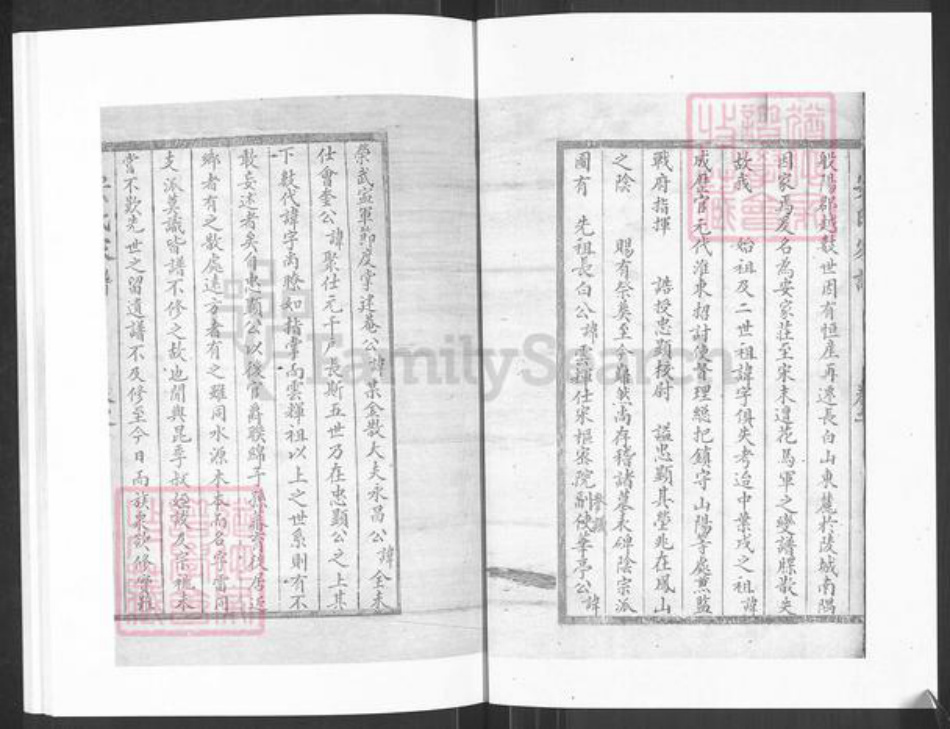 般陽郡越數世因有恒産再遷長白山東麓於陵城南隅
因家焉爰名為安家莊至宋末遭花馬軍之變譜牒散失
故我 始祖及二世祖諱字俱失考迨中葉戍之祖諱
成歷官元代淮東招討使督理總把鎮守山陽等處兼監
戰府指揮 誥授忠顯校尉 謚忠顯其塋兆在鳳山
之陰 賜有祭奠至今雖然尚存稽諸墓末碑陰宗派
圖有 先祖長白公諱雲輝仕宋樞密院副使參議華亭公諱
榮武寧軍節度掌建菴公諱杲金散大夫永昌公諱全未
仕會奎公諱聚仕元千戶長斯五世乃在忠顯公之上其
下數代諱字尚瞭如指掌而雲輝祖以上之世系則有不
敢妄述者矣自忠顯公以後官爵聯綿子孫
鄉者有之散處遠方者有之雖同水源木本而名字雷同
支派莫識皆譜不修之故也閒與昆季叔姪
嘗不歎先世之留遺譜不及修至今日而族衆欲修
FamilySearch